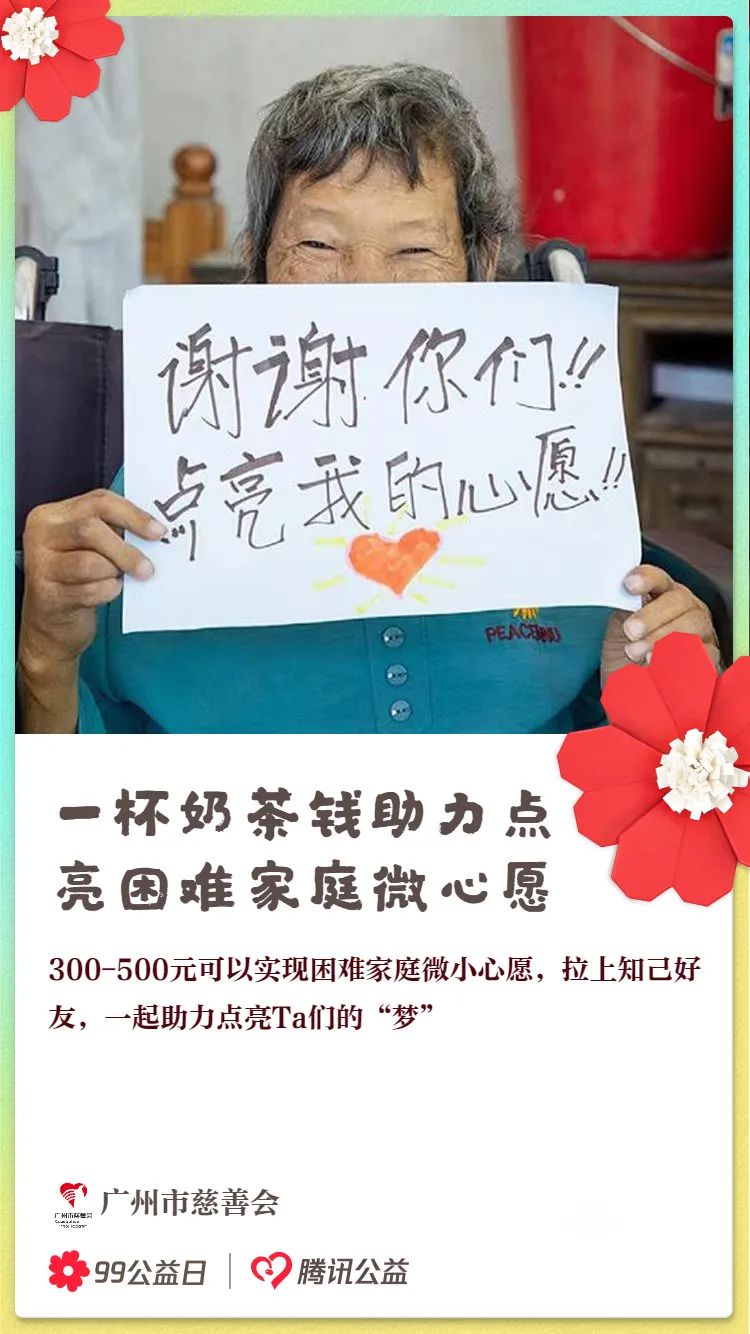 谢谢你们!!
点亮我的心愿!!
一杯奶茶钱助力点
亮困难家庭微心愿
300-500元可以实现困难家庭微小心愿，拉上知己好
友，一起助力点亮Ta们的“梦”
广州市慈善会
广州市慈善会
99公益日
腾讯公益